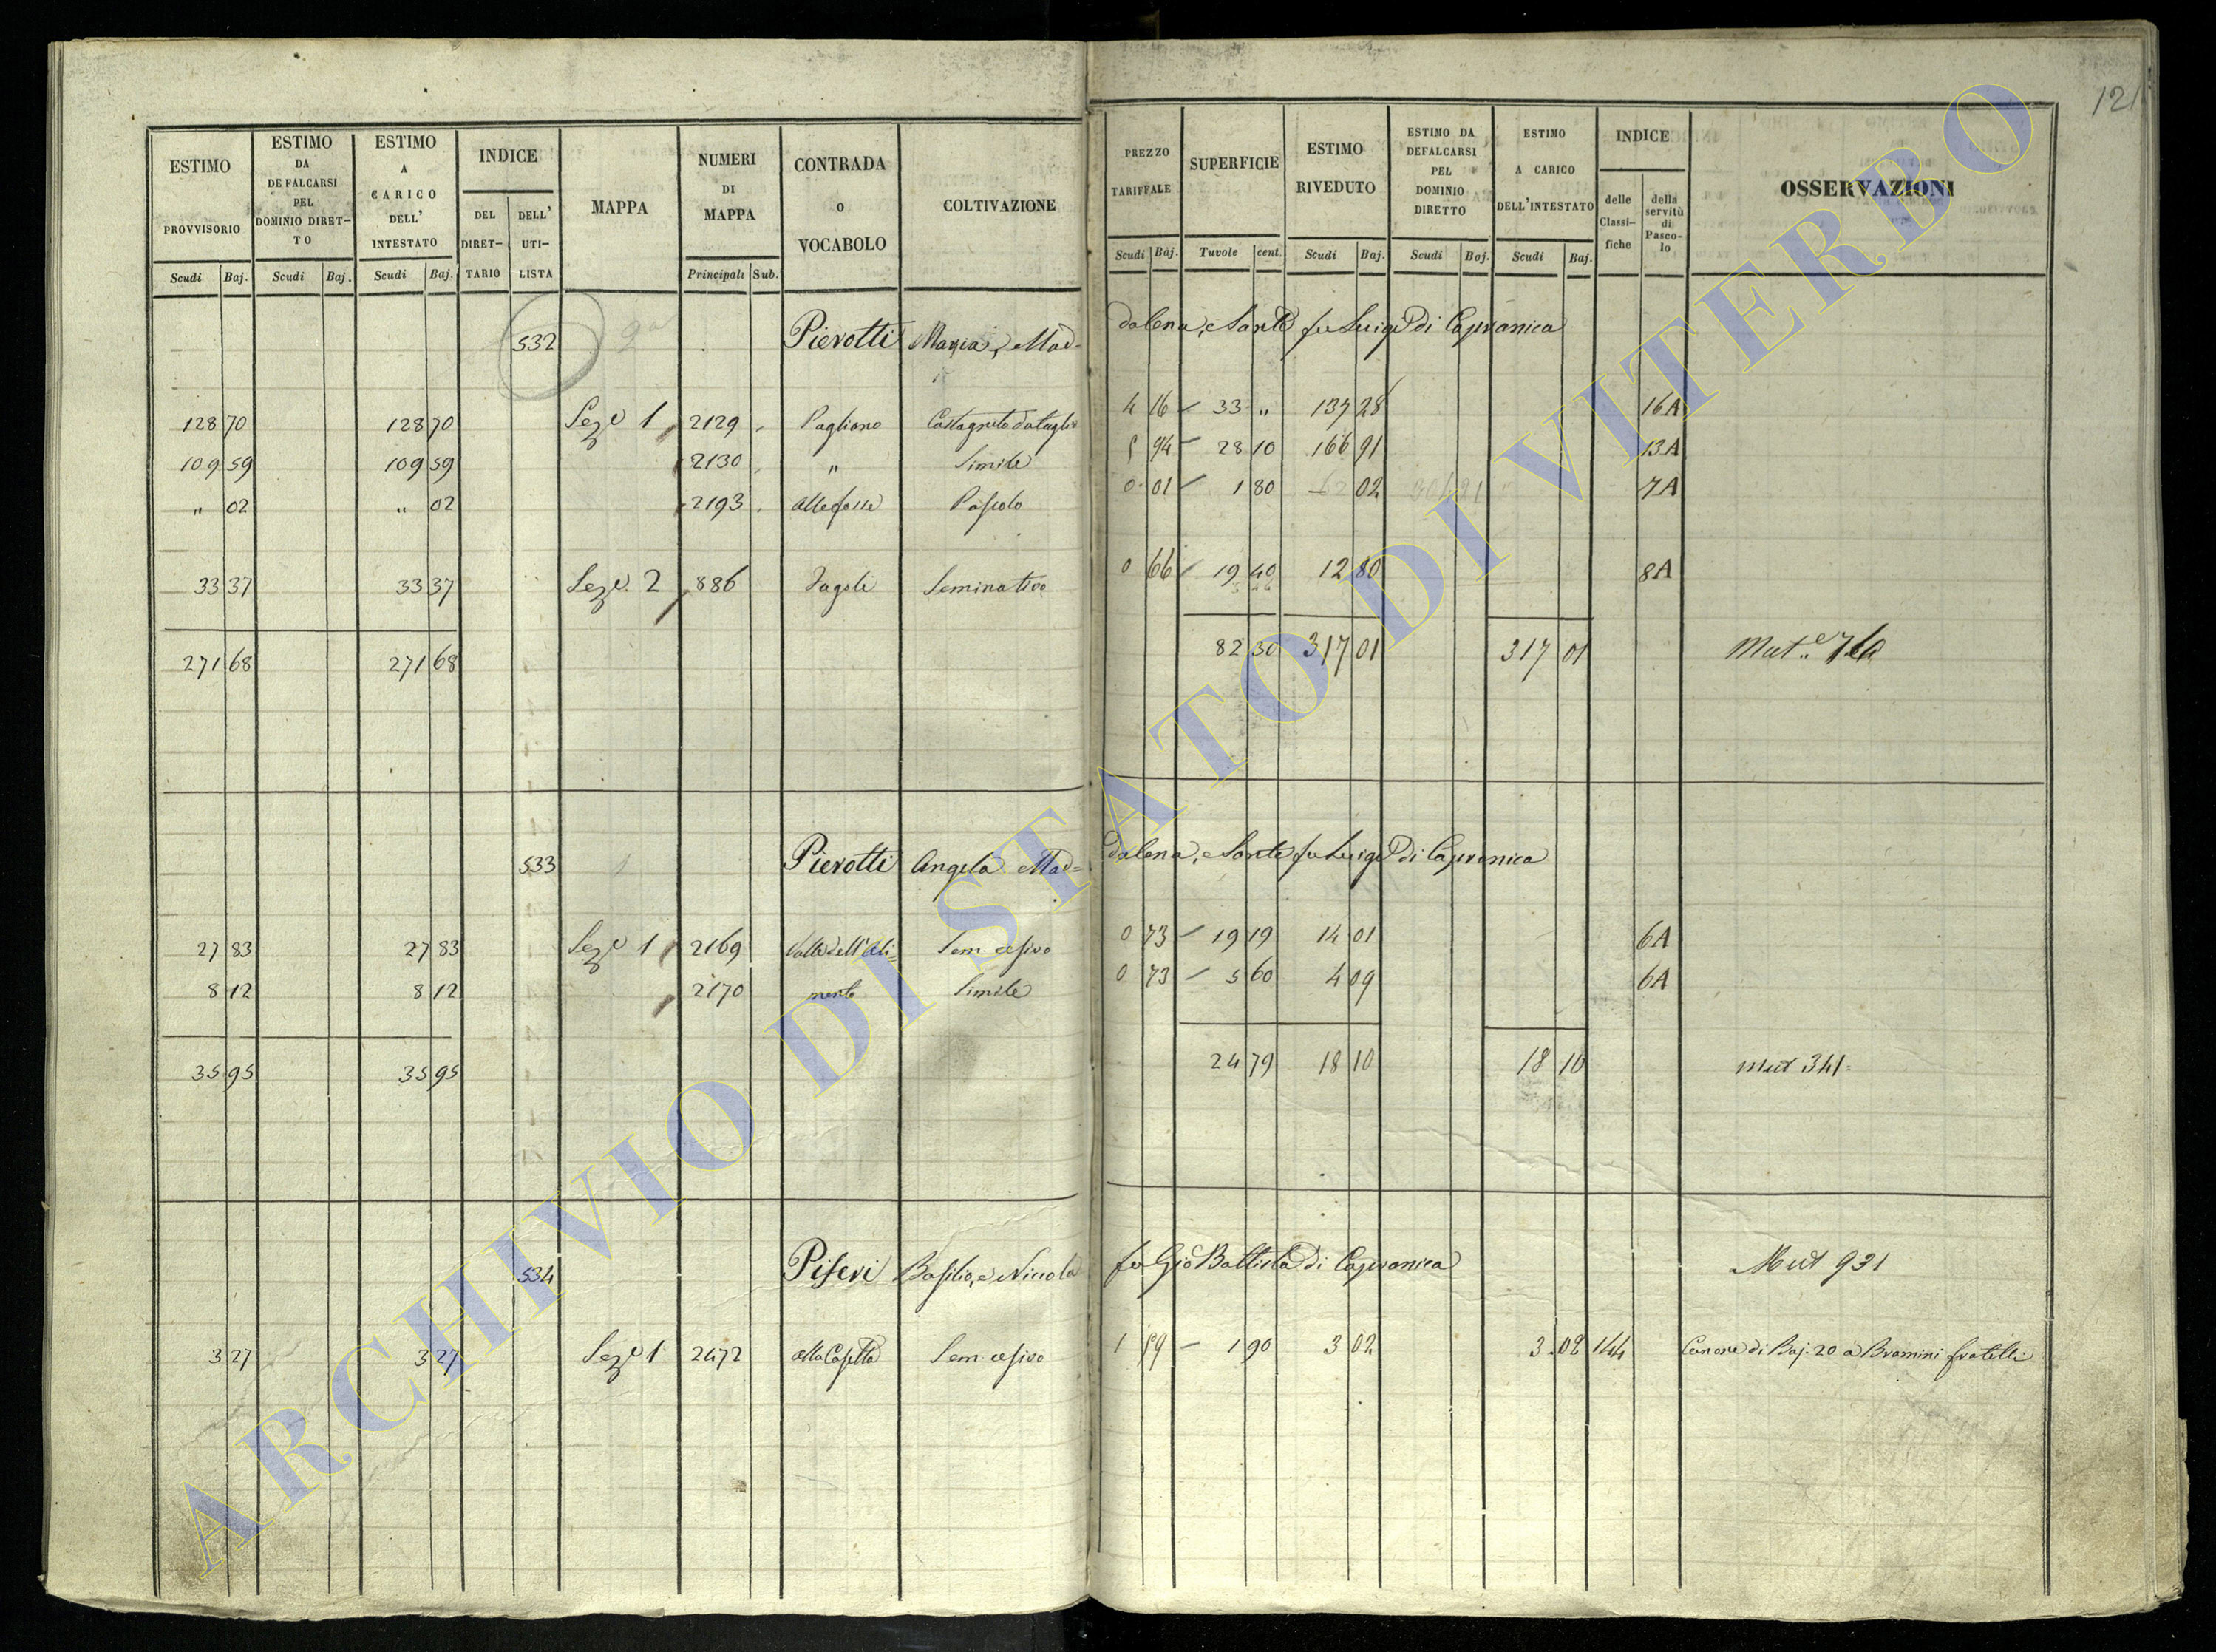 121
ESTIMO PROVVISORIO
ESTIMO DA DE FALCARSI PEL DOMINIO DIRET-TO
ESTIMO A CARICO DELL' INTESTATO
INDICE
DEL DIRET-TARIO
DELL' UTI-LISTA
MAPPA
NUMERI DI MAPPA
CONTRADA o VOCABOLO
COLTIVAZIONE
PREZZO TARIFFALE
SUPERFICIE
ESTIMO RIVEDUTO
ESTIMO DA DEFALCARSI PEL DOMINIO DIRETTO
ESTIMO A CARICO DELL'INTESTATO
INDICE
delle Classi-fiche
della servitù di Pasco-lo
OSSERVAZIONI
Scudi Baj. Scudi Baj. Scudi Baj. Principali Sub. Scudi Baj. Tuvole cent. Scudi Baj. Scudi Baj. Scudi Baj.
532 Pierotti Maria, Mad= dalena, e Sante fu Luigi di Capranica
128 70 128 70 Sez.e 1 2129 Pagliano Castagneto da taglio 4 16 33 " 137 28 16A
109 59 109 59 2130 " Simile 5 94 28 10 166 91 13A
" 02 " 02 2193 alle fosse Pascolo 0 01 1 80 02 7A
33 37 33 37 Sez.e 2 886 Seminativo 0 66 19 40 12 80 8A
271 68 271 68 82 30 317 01 317 01
533 Pierotti Angela Mad= dalena, e Sante fu Luigi di Capranica
27 83 27 83 Sez.e 1 2169 Valle dell'Ali= Sem. olivo 0 73 19 19 14 01 6A
8 12 8 12 2170 mento Simile 0 73 5 60 4 09 6A
35 95 35 95 24 79 18 10 18 10 Mut 341
534 Piferi Basilio, e Niccola fu Gio Battista di Capranica Mut 931
3 27 3 27 Sez.e 1 2472 alla Casetta Sem. olivo 1 59 1 90 3 02 3 02 144 Canone di Baj. 20 a Bramini fratelli
ARCHIVIO DI STATO DI VITERBO